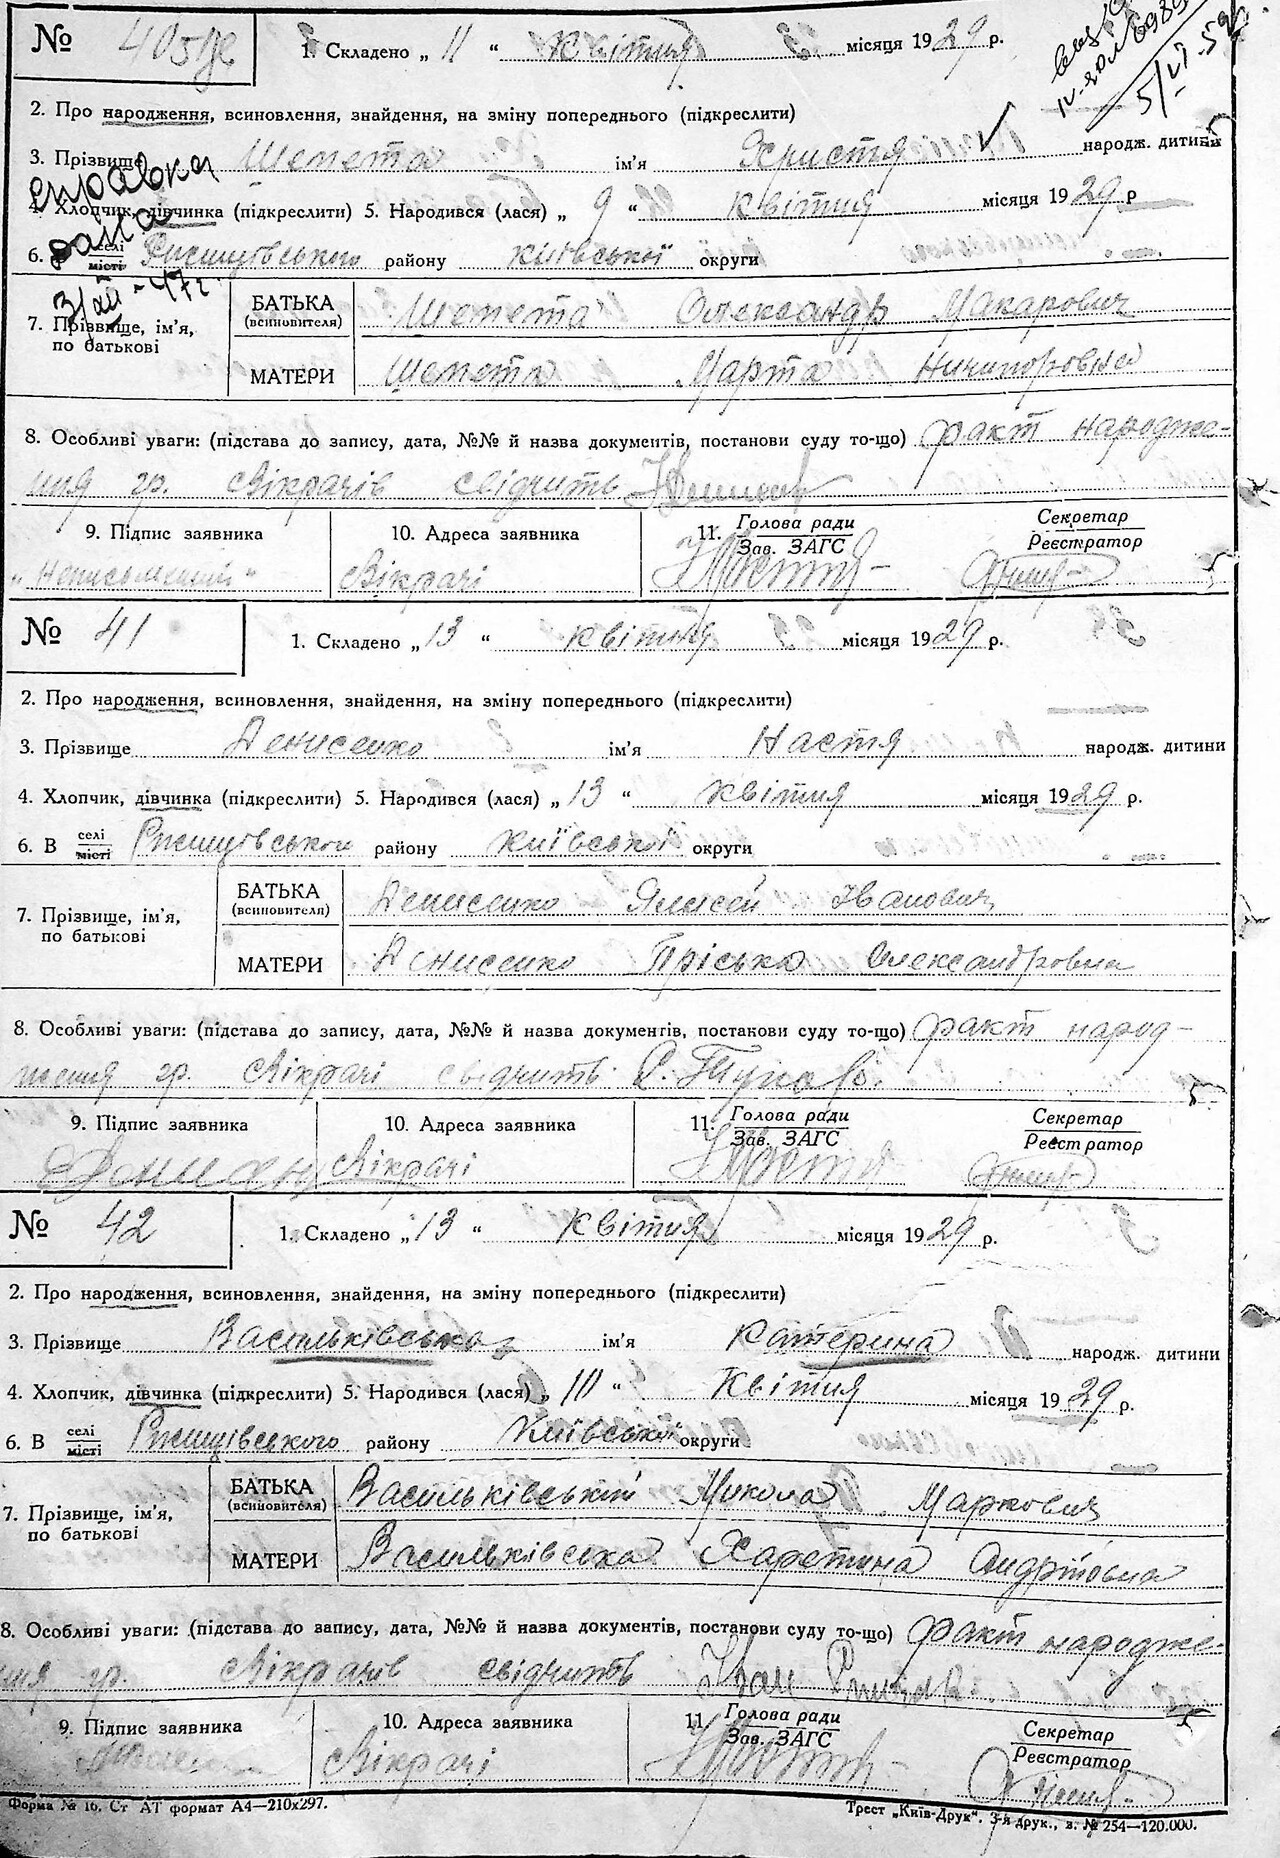 № 40
1. Складено „ 11 “ Квітня місяця 1929 р.
2. Про народження, всиновлення, знайдення, на зміну попереднього (підкреслити)
3. Прізвище Шепета ім'я Христя народж. дитини
справка
4. Хлопчик, дівчинка (підкреслити) 5. Народився (лася) „ 9 “ Квітня місяця 1929 р
дана
6. В селі місті Ржищівського району Київської округи
7. Прізвище, ім'я, по батькові
БАТЬКА (всиновителя) Шепета Олександр Макарович
МАТЕРИ Шепета Марта Ничипоровна
8. Особливі уваги: (підстава до запису, дата, №№ й назва документів, постанови суду то-що) факт народже-
ння гр. Вікрачів свідчить
9. Підпис заявника 10. Адреса заявника 11. Голова ради Зав. ЗАГС Секретар Реєстратор
„Неписьменний“ Вікрачі
№ 41
1. Складено „ 13 “ Квітня місяця 1929 р.
2. Про народження, всиновлення, знайдення, на зміну попереднього (підкреслити)
3. Прізвище Денисенко ім'я Настя народж. дитини
4. Хлопчик, дівчинка (підкреслити) 5. Народився (лася) „ 13 “ Квітня місяця 1929 р.
6. В селі місті Ржищівського району Київської округи
7. Прізвище, ім'я, по батькові
БАТЬКА (всиновителя) Денисенко Ялисей Іванович
МАТЕРИ Денисенко Пріська Олександровна
8. Особливі уваги: (підстава до запису, дата, №№ й назва документів, постанови суду то-що) факт народ-
ження гр. Вікрачі свідчить
9. Підпис заявника 10. Адреса заявника 11. Голова ради Зав. ЗАГС Секретар Реєстратор
Вікрачі
№ 42
1. Складено „ 13 “ Квітня місяця 1929 р.
2. Про народження, всиновлення, знайдення, на зміну попереднього (підкреслити)
3. Прізвище Васильківська ім'я Катерина народж. дитини
4. Хлопчик, дівчинка (підкреслити) 5. Народився (лася) „ 10 “ Квітня місяця 1929 р.
6. В селі місті Ржищівського району Київської округи
7. Прізвище, ім'я, по батькові
БАТЬКА (всиновителя) Васильківський Микола Маркович
МАТЕРИ Васильківська Харетина Андріївна
8. Особливі уваги: (підстава до запису, дата, №№ й назва документів, постанови суду то-що) факт народже-
ння гр. Вікрачів свідчить Іван
9. Підпис заявника 10. Адреса заявника 11. Голова ради Зав. ЗАГС Секретар Реєстратор
Вікрачі
Форма № 16. Ст АТ формат А4—210х297. Трест „Київ-Друк“. 3-я друк., з. № 254—120.000.